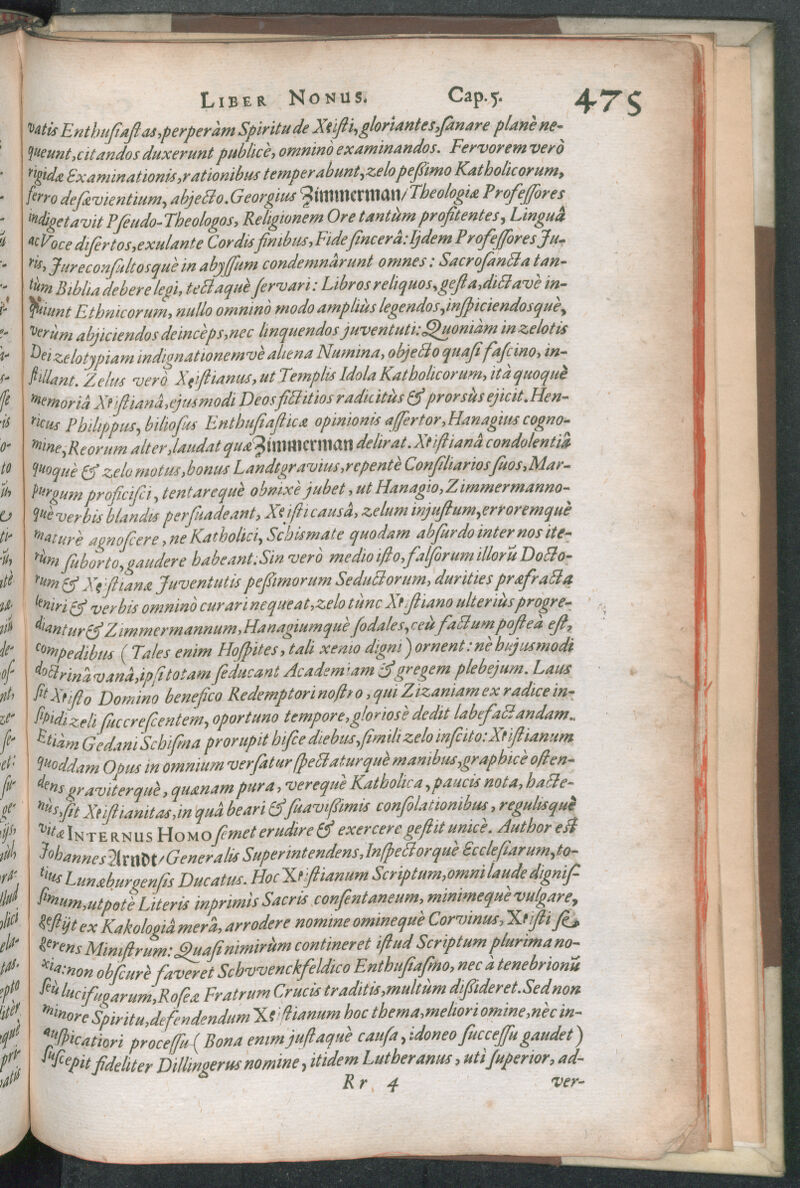 LIBER NONUS. Cap. 5. 475
vatis Enthusiastas, perperàm Spiritu de Xρisti, gloriantes, sanare planè ne-
queunt, citandos duxerunt publicè, omninò examinandos. Fervorem verò
rigidæ Examinationis, rationibus temperabunt, zelo pessimo Katholicorum,
ferro desævientium, abjecto. Georgius Zimmerman/ Theologiæ Professores
indigetavit Pseudo-Theologos, Religionem Ore tantùm profitentes, Linguâ
ac Voce disertos, exulante Cordis finibus, Fide sincerâ: Ijdem Professores Ju-
ris, Jureconsultosquè in abyssum condemnârunt omnes: Sacrosancta tan-
tùm Biblia debere legi, tectaquè servari: Libros reliquos, gesta, dictavè in-
quiunt Ethnicorum, nullo omninò modo ampliùs legendos, inspiciendosquè,
verùm abjiciendos deincèps, nec linquendos juventuti: Quoniàm in zelotis
Dei zelotypiam indignationemvè aliena Numina, objecto quasi fascino, in-
stillant. Zelus verò Xρistianus, ut Templis Idola Katholicorum, ità quoquè
memoriâ Xρistianâ, ejusmodi Deos fictitios radicitùs & prorsùs ejicit. Hen-
ricus Philippus, biliosus Enthusiasticæ opinionis assertor, Hanagius cogno-
mine, Reorum alter, laudat quæ Zimmerman delirat. Xρistianâ condolentiâ
quoquè & zelo motus, bonus Landtgravius, repentè Consiliarios suos, Mar-
purgum proficisci, tentarequè obnixè jubet, ut Hanagio, Zimmermanno-
què verbis blandis persuadeant, Xρisti causâ, zelum injustum, erroremquè
maturè agnoscere, ne Katholici, Schismate quodam absurdo inter nos ite-
rùm suborto, gaudere habeant: Sin verò medio isto, falsorum illorū Docto-
rum & Xρistianæ Juventutis pessimorum Seductorum, durities præfracta
leniri & verbis omninò curari nequeat, zelo tùnc Xρistiano ulteriùs progre-
diantur & Zimmermannum, Hanagiumquè sodales, ceù factum posteà est,
compedibus (Tales enim Hospites, tali xenio digni) ornent: nè hujusmodi
doctrinâ vanâ, ipsi totam seducant Academiam & gregem plebejum. Laus
sit Xρisto Domino benefico Redemptori nostro, qui Zizaniam ex radice in-
sipidi zeli succrescentem, oportuno tempore, gloriosè dedit labefactandam.
Etiàm Gedani Schisma prorupit hisce diebus, simili zelo inscito: Xρistianum
quoddam Opus in omnium versatur spectaturquè manibus, graphicè osten-
dens graviterquè, quænam pura, verequè Katholica, paucis nota, hacte-
nùs, sit Xρistianitas, in quâ beari & suavissimis consolationibus, regulisquè
vitæ INTERNUS HOMO semet erudire & exercere gestit unicè. Author est
Johannes Arndt/ Generalis Superintendens, Inspectorquè Ecclesiarum, to-
tius Lunæburgensis Ducatus. Hoc Xρistianum Scriptum, omni laude dignis-
simum, utpotè Literis inprimìs Sacris consentaneum, minimequè vulgare,
gestijt ex Kakologiâ merâ, arrodere nomine ominequè Corvinus, Xρisti se
gerens Ministrum: Quasi nimirùm contineret istud Scriptum plurima no-
xia: non obscurè faveret Schvvenckfeldico Enthusiasmo, nec à tenebrionū
seù lucifugarum, Roseæ Fratrum Crucis traditis, multùm dissideret. Sed non
minore Spiritu, defendendum Xρistianum hoc thema, meliori omine, nèc in-
auspicatiori processu (Bona enim justaquè causa, idoneo successu gaudet)
suscepit fideliter Dillingerus nomine, itidem Lutheranus, uti superior, ad-
Rr 4 ver-